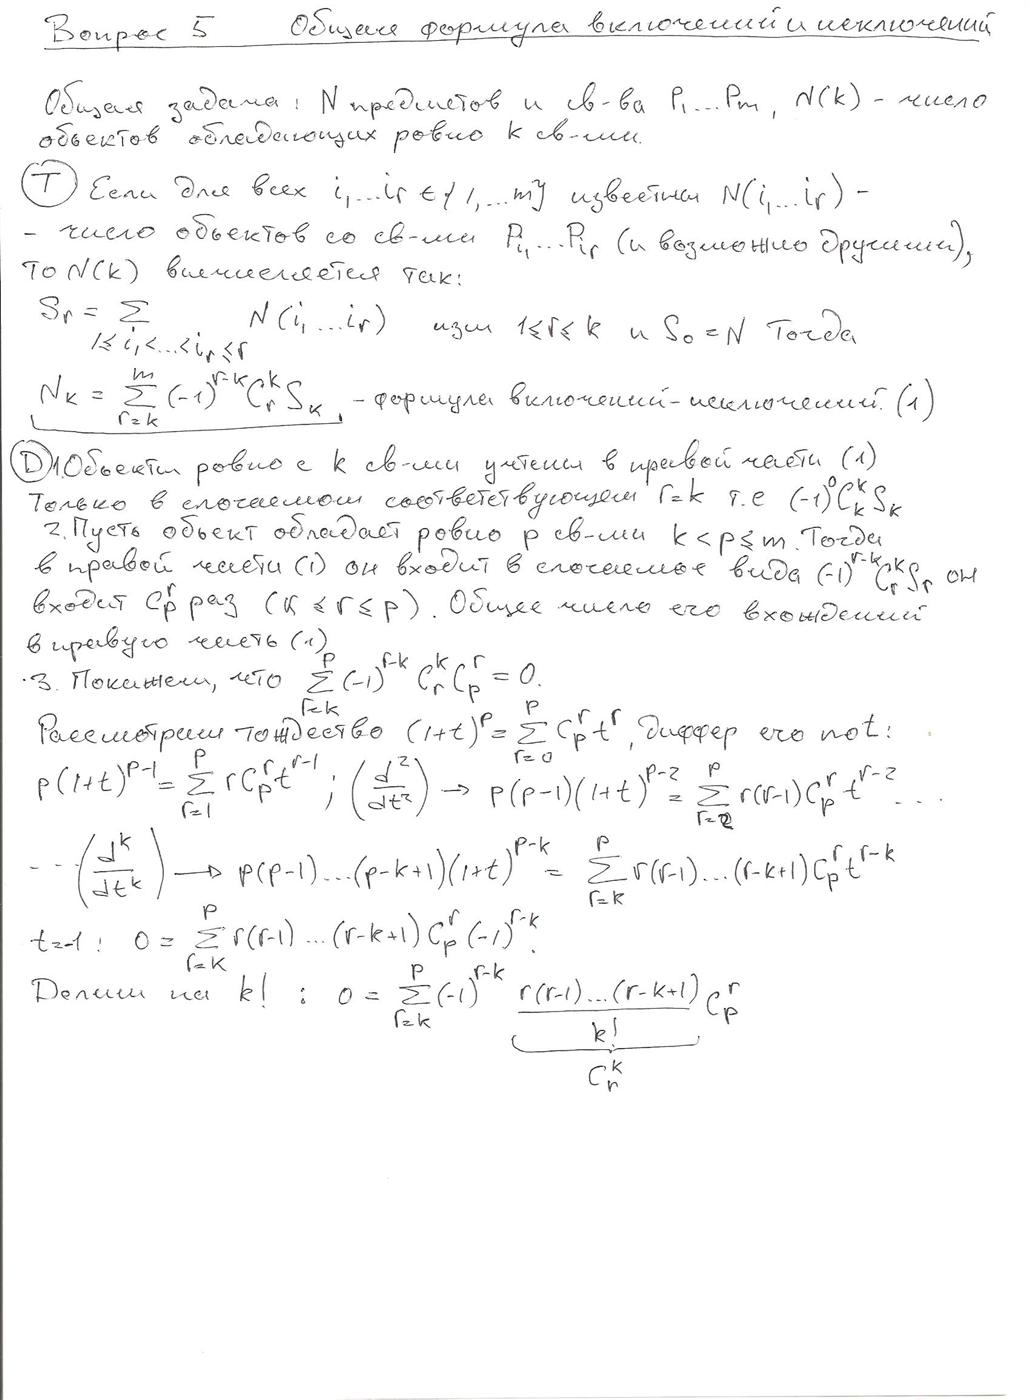 Вопрос 5 Общая формула включений и исключений
Общая задача: N предметов и св-ва P₁...Pm, N(k) - число
объектов обладающих ровно k св-ми.
(T) Если для всех i₁...iᵣ ∈ {1,...m} известна N(i₁...iᵣ) -
- число объектов со св-ми Pi₁...Piᵣ (и возможно другими),
то N(k) вычисляется так:
Sᵣ = Σ_{1≤i₁<...<iᵣ≤r} N(i₁...iᵣ) 1≤r≤k и S₀=N Тогда
Nₖ = Σ_{r=k}^{m} (-1)^{r-k} C_r^k Sₖ - формула включений-исключений. (1)
(D) 1. Объекты ровно с k св-ми учтены в правой части (1)
только в слогаемом соответствующем r=k т.е (-1)^0 C_k^k Sₖ
2. Пусть объект обладает ровно p св-ми k<p≤m. Тогда
в правой части (1) он входит в слогаемое вида (-1)^{r-k} C_r^k Sᵣ он
входит C_p^r раз (k≤r≤p). Общее число его вхождений
в правую часть (1)
3. Покажем, что Σ_{r=k}^{p} (-1)^{r-k} C_r^k C_p^r = 0.
Рассмотрим тождество (1+t)^p = Σ_{r=0}^{p} C_p^r t^r, диффер его по t:
p(1+t)^{p-1} = Σ_{r=1}^{p} r C_p^r t^{r-1}; (d²/dt²) → p(p-1)(1+t)^{p-2} = Σ_{r=2}^{p} r(r-1) C_p^r t^{r-2} ...
... (d^k/dt^k) → p(p-1)...(p-k+1)(1+t)^{p-k} = Σ_{r=k}^{p} r(r-1)...(r-k+1) C_p^r t^{r-k}
t=-1: 0 = Σ_{r=k}^{p} r(r-1)...(r-k+1) C_p^r (-1)^{r-k}.
Делим на k! : 0 = Σ_{r=k}^{p} (-1)^{r-k} r(r-1)...(r-k+1)/k! C_p^r
C_r^k